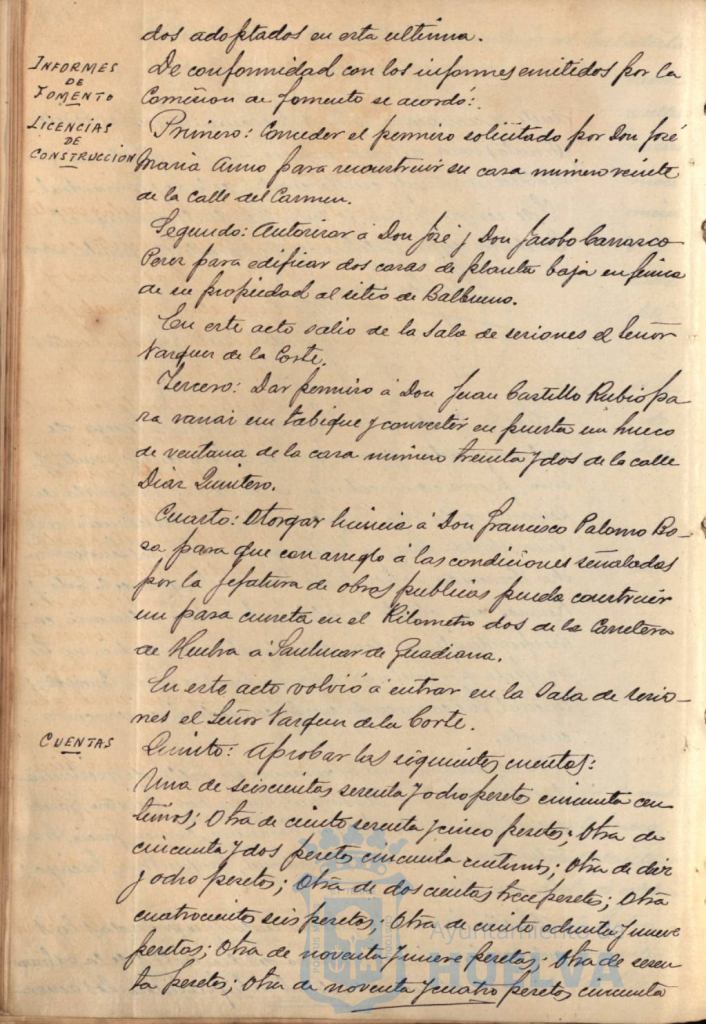 dos adoptados en esta ultima.
INFORMES
DE
FOMENTO
De conformidad con los informes emitidos por la
Comision de fomento se acordó:
LICENCIAS
DE
CONSTRUCCION
Primero: Conceder el permiso solicitado por Don José
Maria para reconstruir su casa numero veinte
de la calle del Carmen.
Segundo: Autorizar á Don José y Don Jacobo Carrasco
Perez para edificar dos casas de planta baja en finca
de su propiedad al sitio de Balbueno.
En este acto salio de la Sala de sesiones el Señor
Vazquez de la Corte.
Tercero: Dar permiso á Don Juan Castillo Rubio pa
ra un tabique y convertir en puerta un hueco
de ventana de la casa numero treinta y dos de la calle
Diaz Quintero.
Cuarto: Otorgar licencia á Don Francisco Palomo Bo-
sa para que con arreglo á las condiciones señaladas
por la jefatura de obras publicas pueda construir
un pasa cuneta en el Kilometro dos de la Carretera
de Huelva á Sanlucar de Guadiana.
En este acto volvió á entrar en la Sala de sesio-
nes el Señor Vazquez de la Corte.
CUENTAS
Quinto: Aprobar las siguientes cuentas:
Una de seiscientas sesenta y ocho pesetas cincuenta cen
timos; Otra de ciento sesenta y cinco pesetas; Otra de
cincuenta y dos pesetas cincuenta centimos; Otra de diez
y ocho pesetas; Otra de doscientas trece pesetas; Otra
cuatrocientas seis pesetas; Otra de ciento ochenta y nueve
pesetas; Otra de noventa y nueve pesetas; Otra de sesen
ta pesetas; Otra de noventa y cuatro pesetas cincuenta
Ayuntamiento
HUELVA